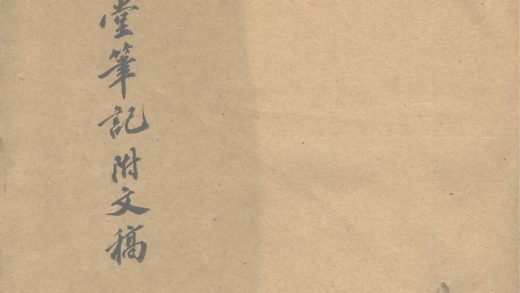 堂筆記附文稿